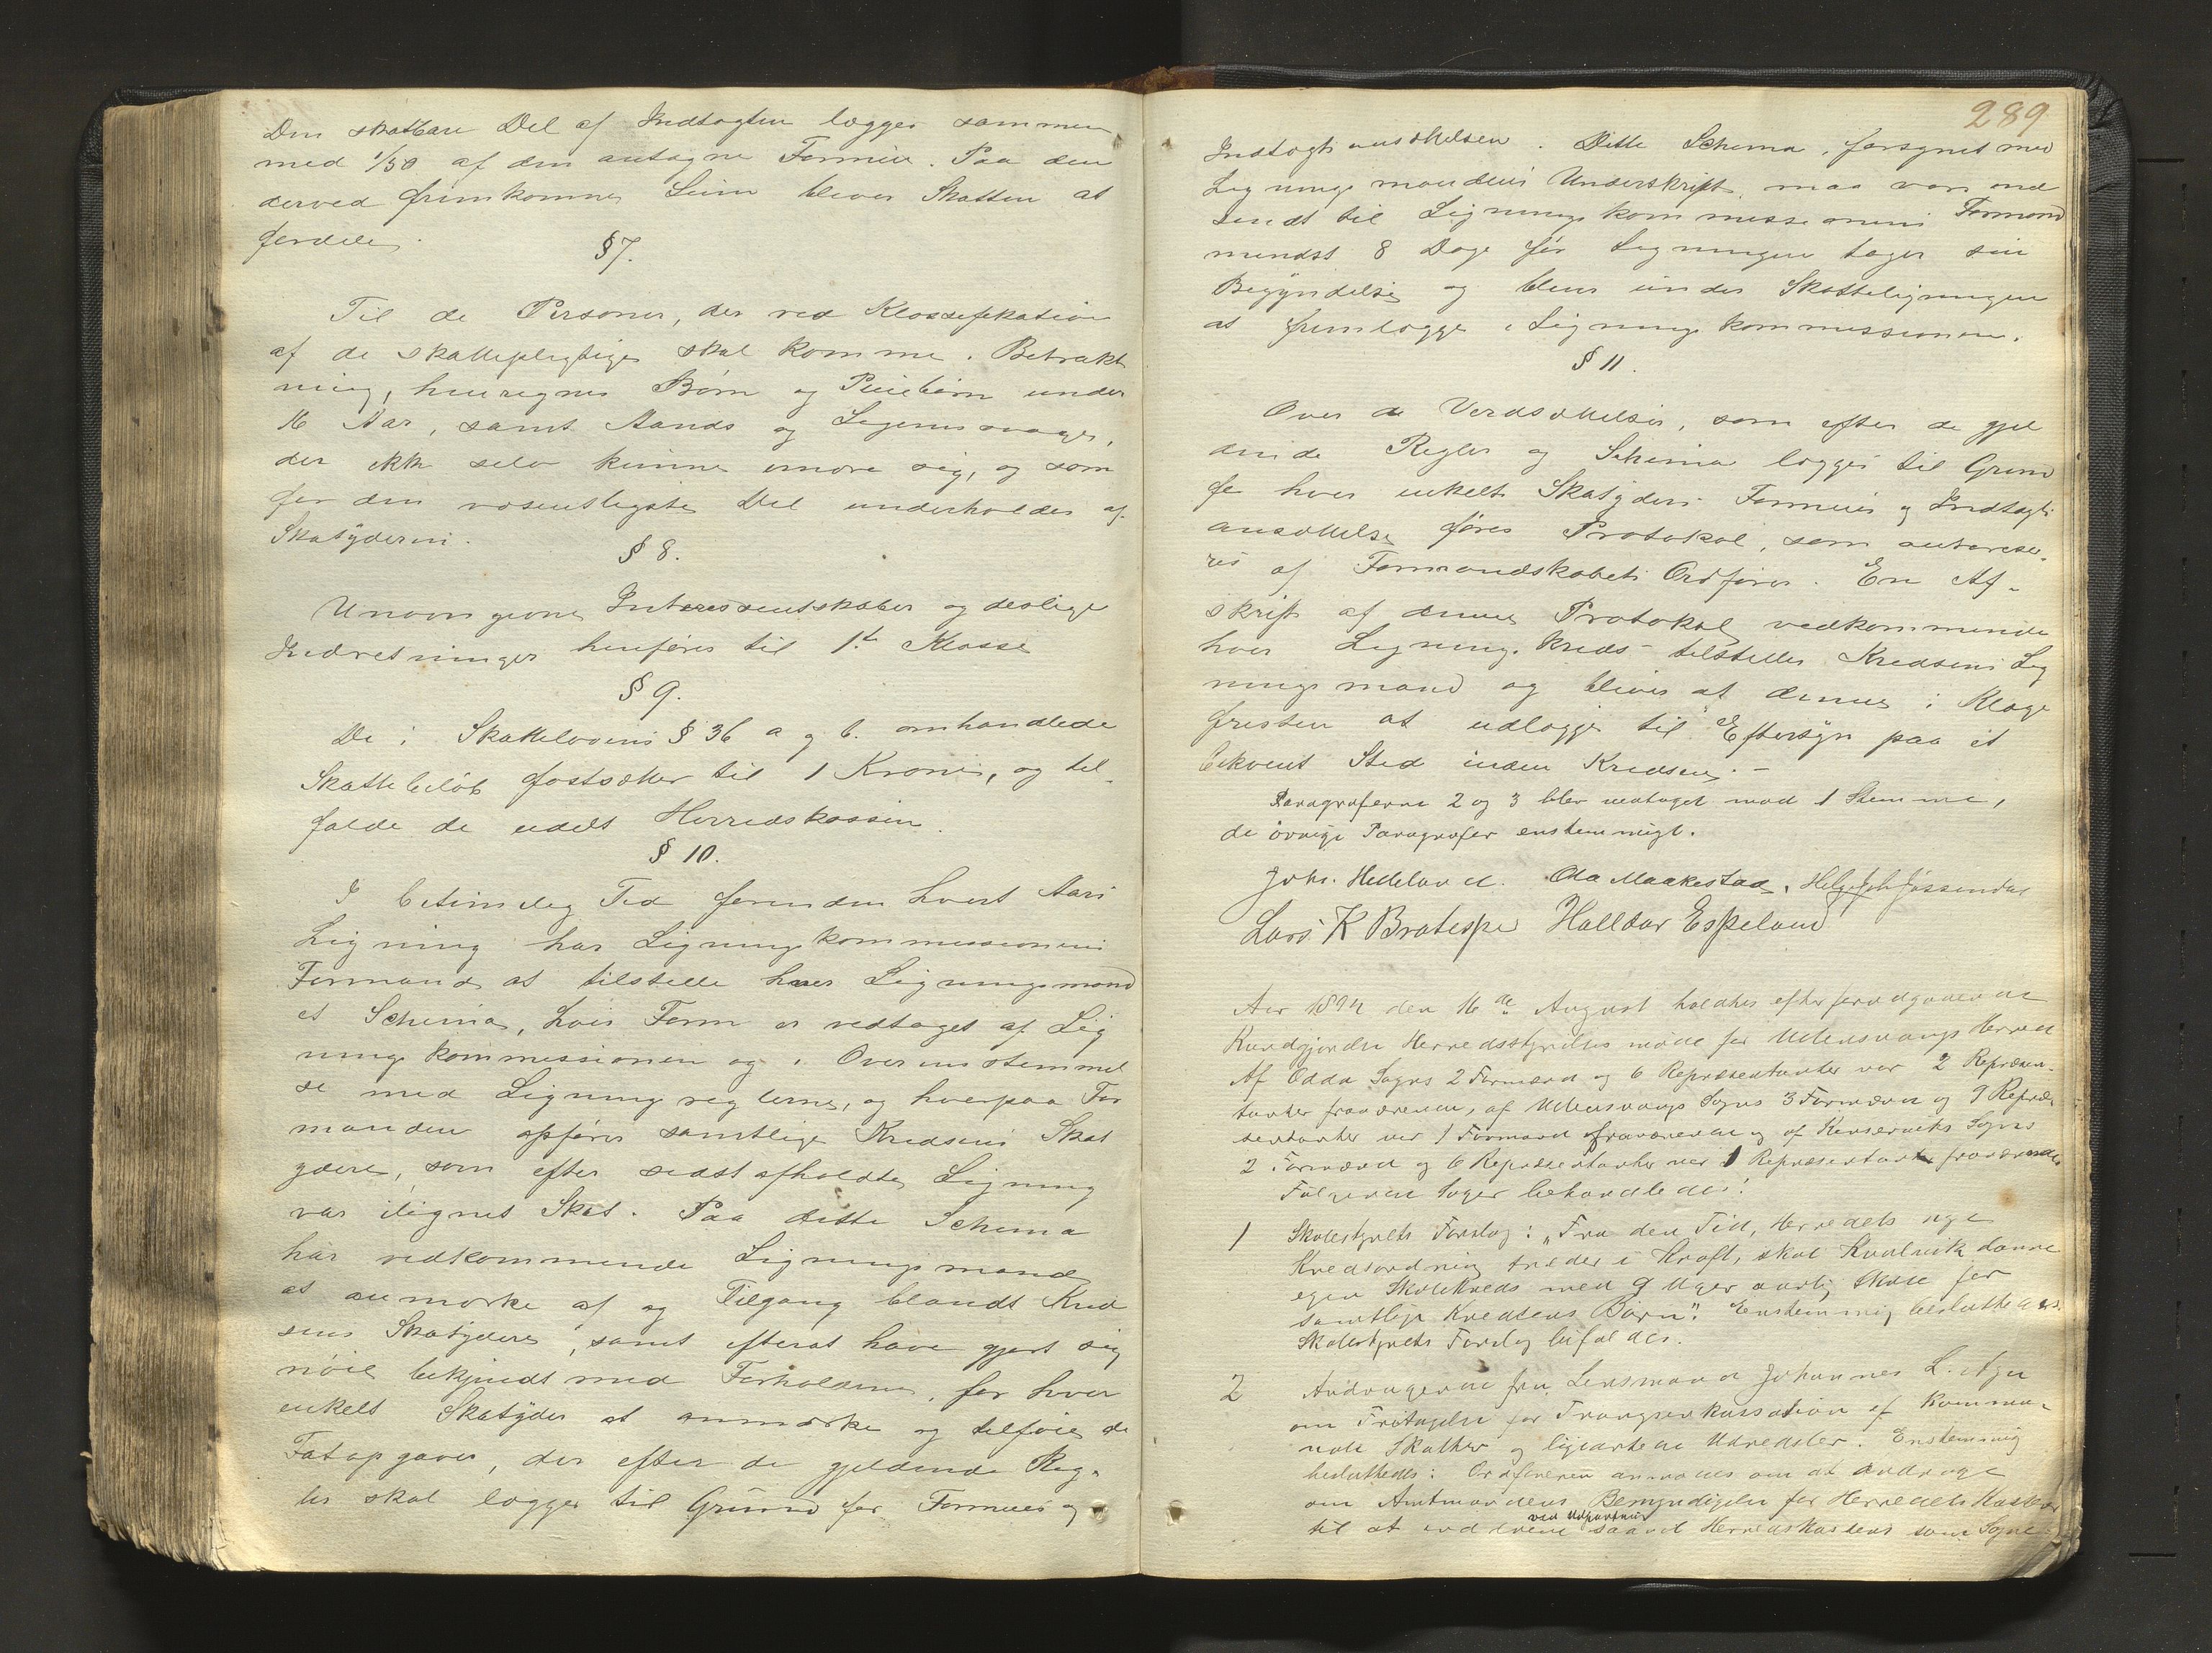 Den skatbare Del af Indtægten lægges sammen
med 1/50 af den antagne Formue. Paa den
derved fremkomne Sum bliver Skatten at
fordele.
§ 7.
Til de Personer, der ved Klassefikation
af de skattepligtige skal komme i Betrakt
ning, henregnes Børn og Pleiebørn under
16 Aar, samt Aands og Legemssvage,
der ikke selv kunne ernære sig, og som
for den væsentligste Del underholdes af
Skatyderen.
§ 8.
Unævngivne Interessentskaber og deslige
Indretninger henføres til 1ste Klasse
§ 9.
De i Skattelovens § 36 a og b. omhandlede
Skattebeløb fastsættes til 1 Krone, og til-
falde de udelt Herredskassen.
§ 10.
I betimelig Tid forinden hvert Aars
Ligning har Ligningskommissionens
Formand at tilstille hver Ligningsmand
et Schema, hvis Form er vedtaget af Lig
ningskommissionen og i Overensstemmel
se med Ligningsreglerne, og hvorpaa For
manden opfører samtlige Kredsens Skat
ydere, som efter sidst afholdte Ligning
var ilignet Skat. Paa dette Schema
har vedkommende Ligningsmand
at anmærke af og Tilgang blandt Kred
sens Skatydere, samt efterat have gjort sig
nöie bekjendt med Forholdene, for hver
enkelt Skatyder at anmærke og tilföie de
Fatopgaver, der efter de gjeldende Reg-
ler skal lægges til Grund for Formues og
289
Indtægtsansættelsen. Dette Schema, forsynet med
Ligningsmandens Underskrift, maa være ind
sendt til Ligningskommissionens Formand
mindst 8 Dage för Ligningen tager sin
Begyndelse og bliver under Skatteligningen
at fremlægge i Ligningskommissionen.
§ 11.
Over de Verdsættelser, som efter de gjel
dende Regler og Schema lægges til Grund
for hver enkelt Skatyders Formues og Indtægts
ansættelse føres Protokol, som autorise-
res af Formandskabets Ordfører. En Af-
skrift af denne Protokol vedkommende
hver Ligningskreds tilstilles Kredsens Lig
ningsmand og bliver af denne i Klage
fristen at udlægge til Eftersyn paa et
bekvemt Sted inden Kredsen.-
Paragraferne 2 og 3 blev vedtaget mod 1 Stemme,
de övrige Paragrafer enstemmigt.
Johs. Hedeland. Oda Maakestad. Helge Joh Jössendal
Lars K Bratespe Halldor Espeland
Aar 1894 den 16de August holdtes efter forudgaaende
Kundgjørelse Herredsstyrelses möde for Ullensvangs Herred
Af Odda Sogns 2 Formænd og 6 Repræsentanter var 2 Repræsen-
tanter fraværende, af Ullensvangs Sogns 3 Formænd og 9 Repræ-
sentanter var 1 Formand fraværende og af Kinserviks Sogns
2 Formænd og 6 Repræsentanter var 1 Repræsentant fraværende
Følgende Sager behandledes:
1 Skolestyrets Forslag: "Fra den Tid, Herredets nye
Kredsordning træder i Kraft, skal Kvalvik danne
egen Skolekreds med 9 Uger aarlig Skole for
samtlige Kredsens Børn". Enstemmig besluttedes
Skolestyrets Forslag bifaldes.
2 Andragende fra Lensmand Johannes L. Aga
om Fritagelse for Tvangsinkassation af Kommu-
nale Skatter og ligeartede Udredsler. Enstemmig
besluttedes: Ordføreren anmodes om at andrage
om Amtmandens Bemyndigelse for Herredets Kasserer
ved Udpantning
til at inddrive saavel Herredskassens som Sogne-